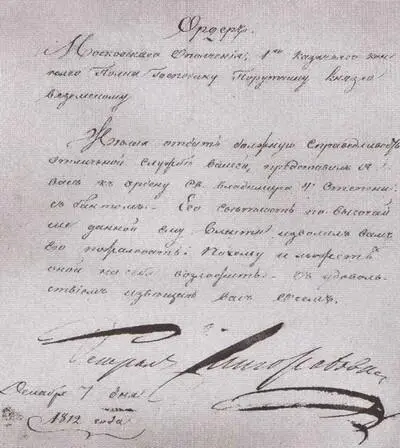 Ордеръ.
Московскаго Ополченія, 1го Казачьяго кон
наго Полка Господину Порутчику Князю
Вяземскому.
Желая отдать должную справедливость
отличной службѣ вашей, представилъ я
васъ къ ордену Св. Владимира 4й Степени
съ бантомъ. Его свѣтлость по высочай
ше данной ему власти изволилъ вамъ
его пожаловать: Почему и имѣете
оной на себя возложить. Съ удоволь
ствіемъ извѣщаю васъ о семъ.
Генералъ
Декабря 7 дня
1812 года